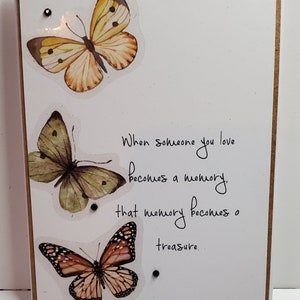 When someone you love
becomes a memory,
that memory becomes a
treasure.